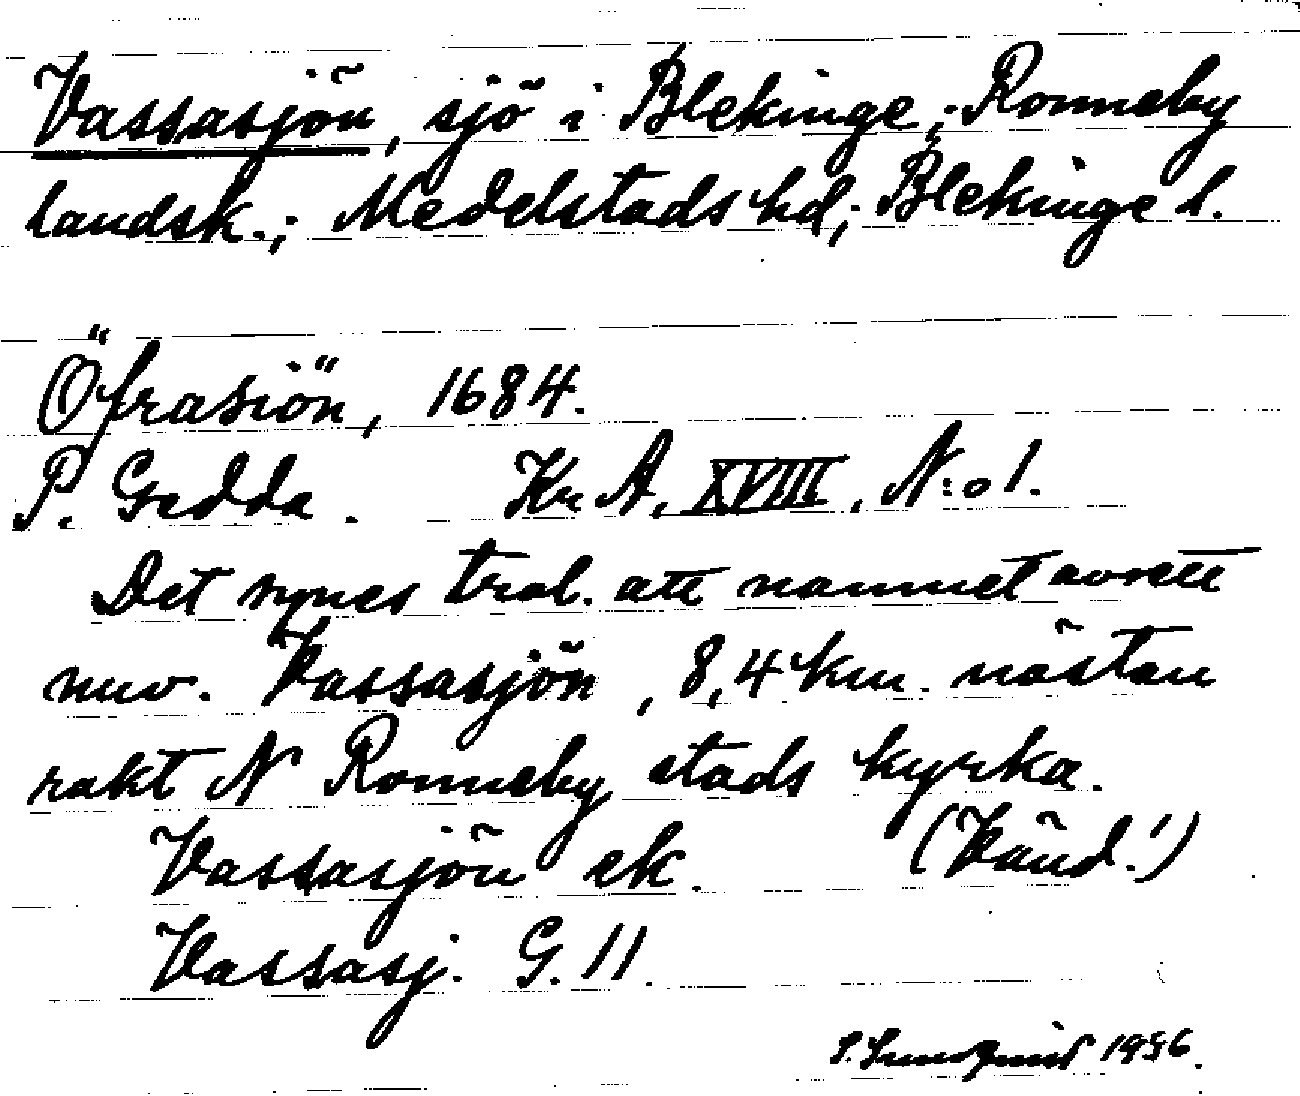 Vassasjön, sjö i Blekinge; Ronneby
landsk.; Medelstads hd; Blekinge l.
Öfrasiön, 1684.
P. Gedda. Kr A, XVIII, N:o 1.
Det synes trol. att namnet avsett
nuv. Vassasjön, 8,4 km. nästan
rakt N Ronneby stads kyrka.
Vassasjön ek. (Vänd!)
Vassasj. G. 11.
1956.